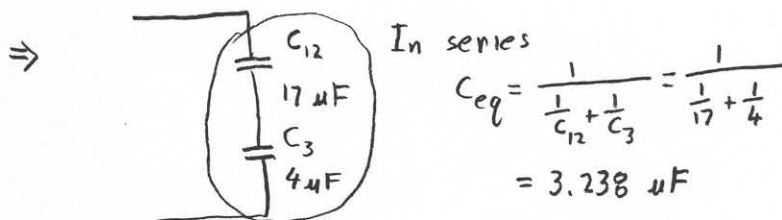 ⇒
C₁₂
17 μF
C₃
4 μF
In series
C_eq = 1/(1/C₁₂ + 1/C₃) = 1/(1/17 + 1/4)
= 3.238 μF